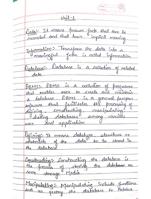 Unit-1
Data: It means known facts that can be
recorded and that have implicit meaning
Information: Transform the data into a
meaningful is called information
Database: Database is a collection of related
data
DBMS: DBMS is a collection of programs
that enables user to create and maintain
a database. DBMS is a general purpose
software that facilitate the processing of
defining, constructing, manipulating
sharing databases among various
user and application
Defining: It means database structure
of the data to be stored in
the database
Constructing: Constructing the database is
the process of storing the database on
some storage Media
Manipulating: Manipulating include functions
such as the database to